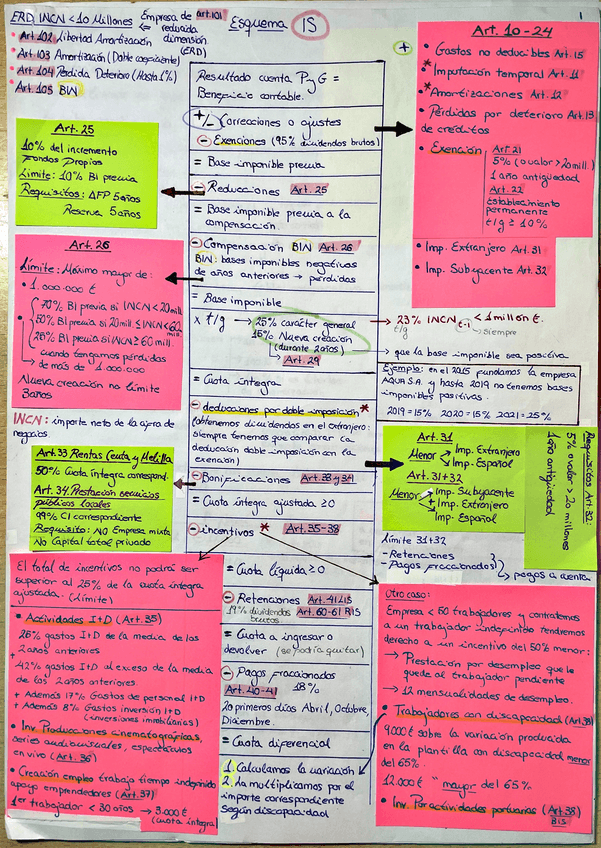 1
ERD INCN < 10 Millones
Empresa de art.101
reducida
dimensión
(ERD)
• Art 102 Libertad Amortización
• Art 103 Amortización (Doble coeficiente)
• Art 104 Pérdida Deterioro (Hasta 1%)
• Art 105 BIN
Esquema IS
Art. 25
10% del incremento
Fondos Propios
Límite: 10% BI previa
Requisitos: ΔFP 5 años
Reserva 5 años
Art. 26
Límite: Máximo mayor de:
• 1.000.000 €
• 70% BI previa si INCN < 20 mill.
50% BI previa si 20 mill. ≤ INCN < 60 mill.
25% BI previa si INCN ≥ 60 mill.
cuando tengamos pérdidas
de más de 1.000.000
Nueva creación no límite
3 años
INCN: importe neto de la cifra de
negocios
Art. 33 Rentas Ceuta y Melilla
50% Cuota íntegra correspond.
Art. 34. Prestación servicios
públicos locales
99% CI correspondiente
Requisito: NO Empresa mixta
No Capital total privado
El total de incentivos no podrá ser
superior al 25% de la cuota íntegra
ajustada. (Límite)
• Actividades I+D (Art. 35)
25% gastos I+D de la media de los
2 años anteriores
+
42% gastos I+D al exceso de la media
de los 2 años anteriores.
+ Además 17% Gastos de personal I+D
+ Además 8% Gastos inversión I+D
(inversiones inmobiliarias)
• Inv. Producciones cinematográficas,
series audiovisuales, espectáculos
en vivo (Art. 36)
• Creación empleo trabajo tiempo indefinido
apoyo emprendedores (Art. 37)
1er trabajador < 30 años → 3.000 €
(cuota íntegra)
Resultado cuenta P y G =
Beneficio contable.
+/- Correcciones o ajustes
- Exenciones (95% dividendos brutos)
= Base imponible previa
- Reducciones Art. 25
= Base imponible previa a la
compensación.
- Compensación BIN Art. 26
BIN: bases imponibles negativas
de años anteriores → pérdidas
= Base imponible
x t/g → 25% carácter general
15% Nueva creación
(durante 2 años)
→ Art. 29
= Cuota íntegra
- deducciones por doble imposición *
(obtenemos dividendos en el extranjero:
siempre tenemos que comparar la
deducción doble imposición con la
exención)
- Bonificaciones Art. 33 y 34
= Cuota íntegra ajustada ≥ 0
- incentivos * Art. 35-38
= Cuota líquida ≥ 0
- Retenciones Art. 41 LIS
19% dividendos brutos Art. 60-61 RIS
= Cuota a ingresar o
devolver (se podría quitar)
- Pagos Fraccionados
Art. 40-41 18%
20 primeros días Abril, Octubre,
Diciembre.
= Cuota diferencial
1. Calculamos la variación
2. La multiplicamos por el
importe correspondiente
según discapacidad
+
Art. 10-24
• Gastos no deducibles Art. 15
* Imputación temporal Art. 11
* Amortizaciones Art. 12
• Pérdidas por deterioro Art. 13
de créditos
• Exención
Art 21
5% (o valor > 20 mill.)
1 año antigüedad
Art. 22
Establecimiento
permanente
t/g ≥ 10%
• Imp. Extranjero Art. 31
• Imp. Subyacente Art. 32
→ 23% INCN t-1 < 1 millón €.
t/g
siempre
→ que la base imponible sea positiva
Ejemplo: en el 2015 fundamos la empresa
AQUA S.A. y hasta 2019 no tenemos bases
imponibles positivas.
2019 = 15% 2020 = 15% 2021 = 25%
Art. 31
Menor → Imp. Extranjero
Imp. Español
Art. 31+32
Menor → Imp. Subyacente
+ Imp. Extranjero
Imp. Español
Requisitos Art. 32:
5% o valor > 20 millones
1 año antigüedad
Límite 31+32
- Retenciones
- Pagos fraccionados
pagos a cuenta
Otro caso:
Empresa < 50 trabajadores y contratamos
a un trabajador indefinido tendremos
derecho a un incentivo del 50% menor:
→ Prestación por desempleo que le
quede al trabajador pendiente
→ 12 mensualidades de desempleo.
• Trabajadores con discapacidad (Art 38)
9.000 € sobre la variación producida
en la plantilla con discapacidad menor
del 65%.
12.000 € " mayor del 65%
• Inv. Por actividades portuarias (Art. 38)
BIS